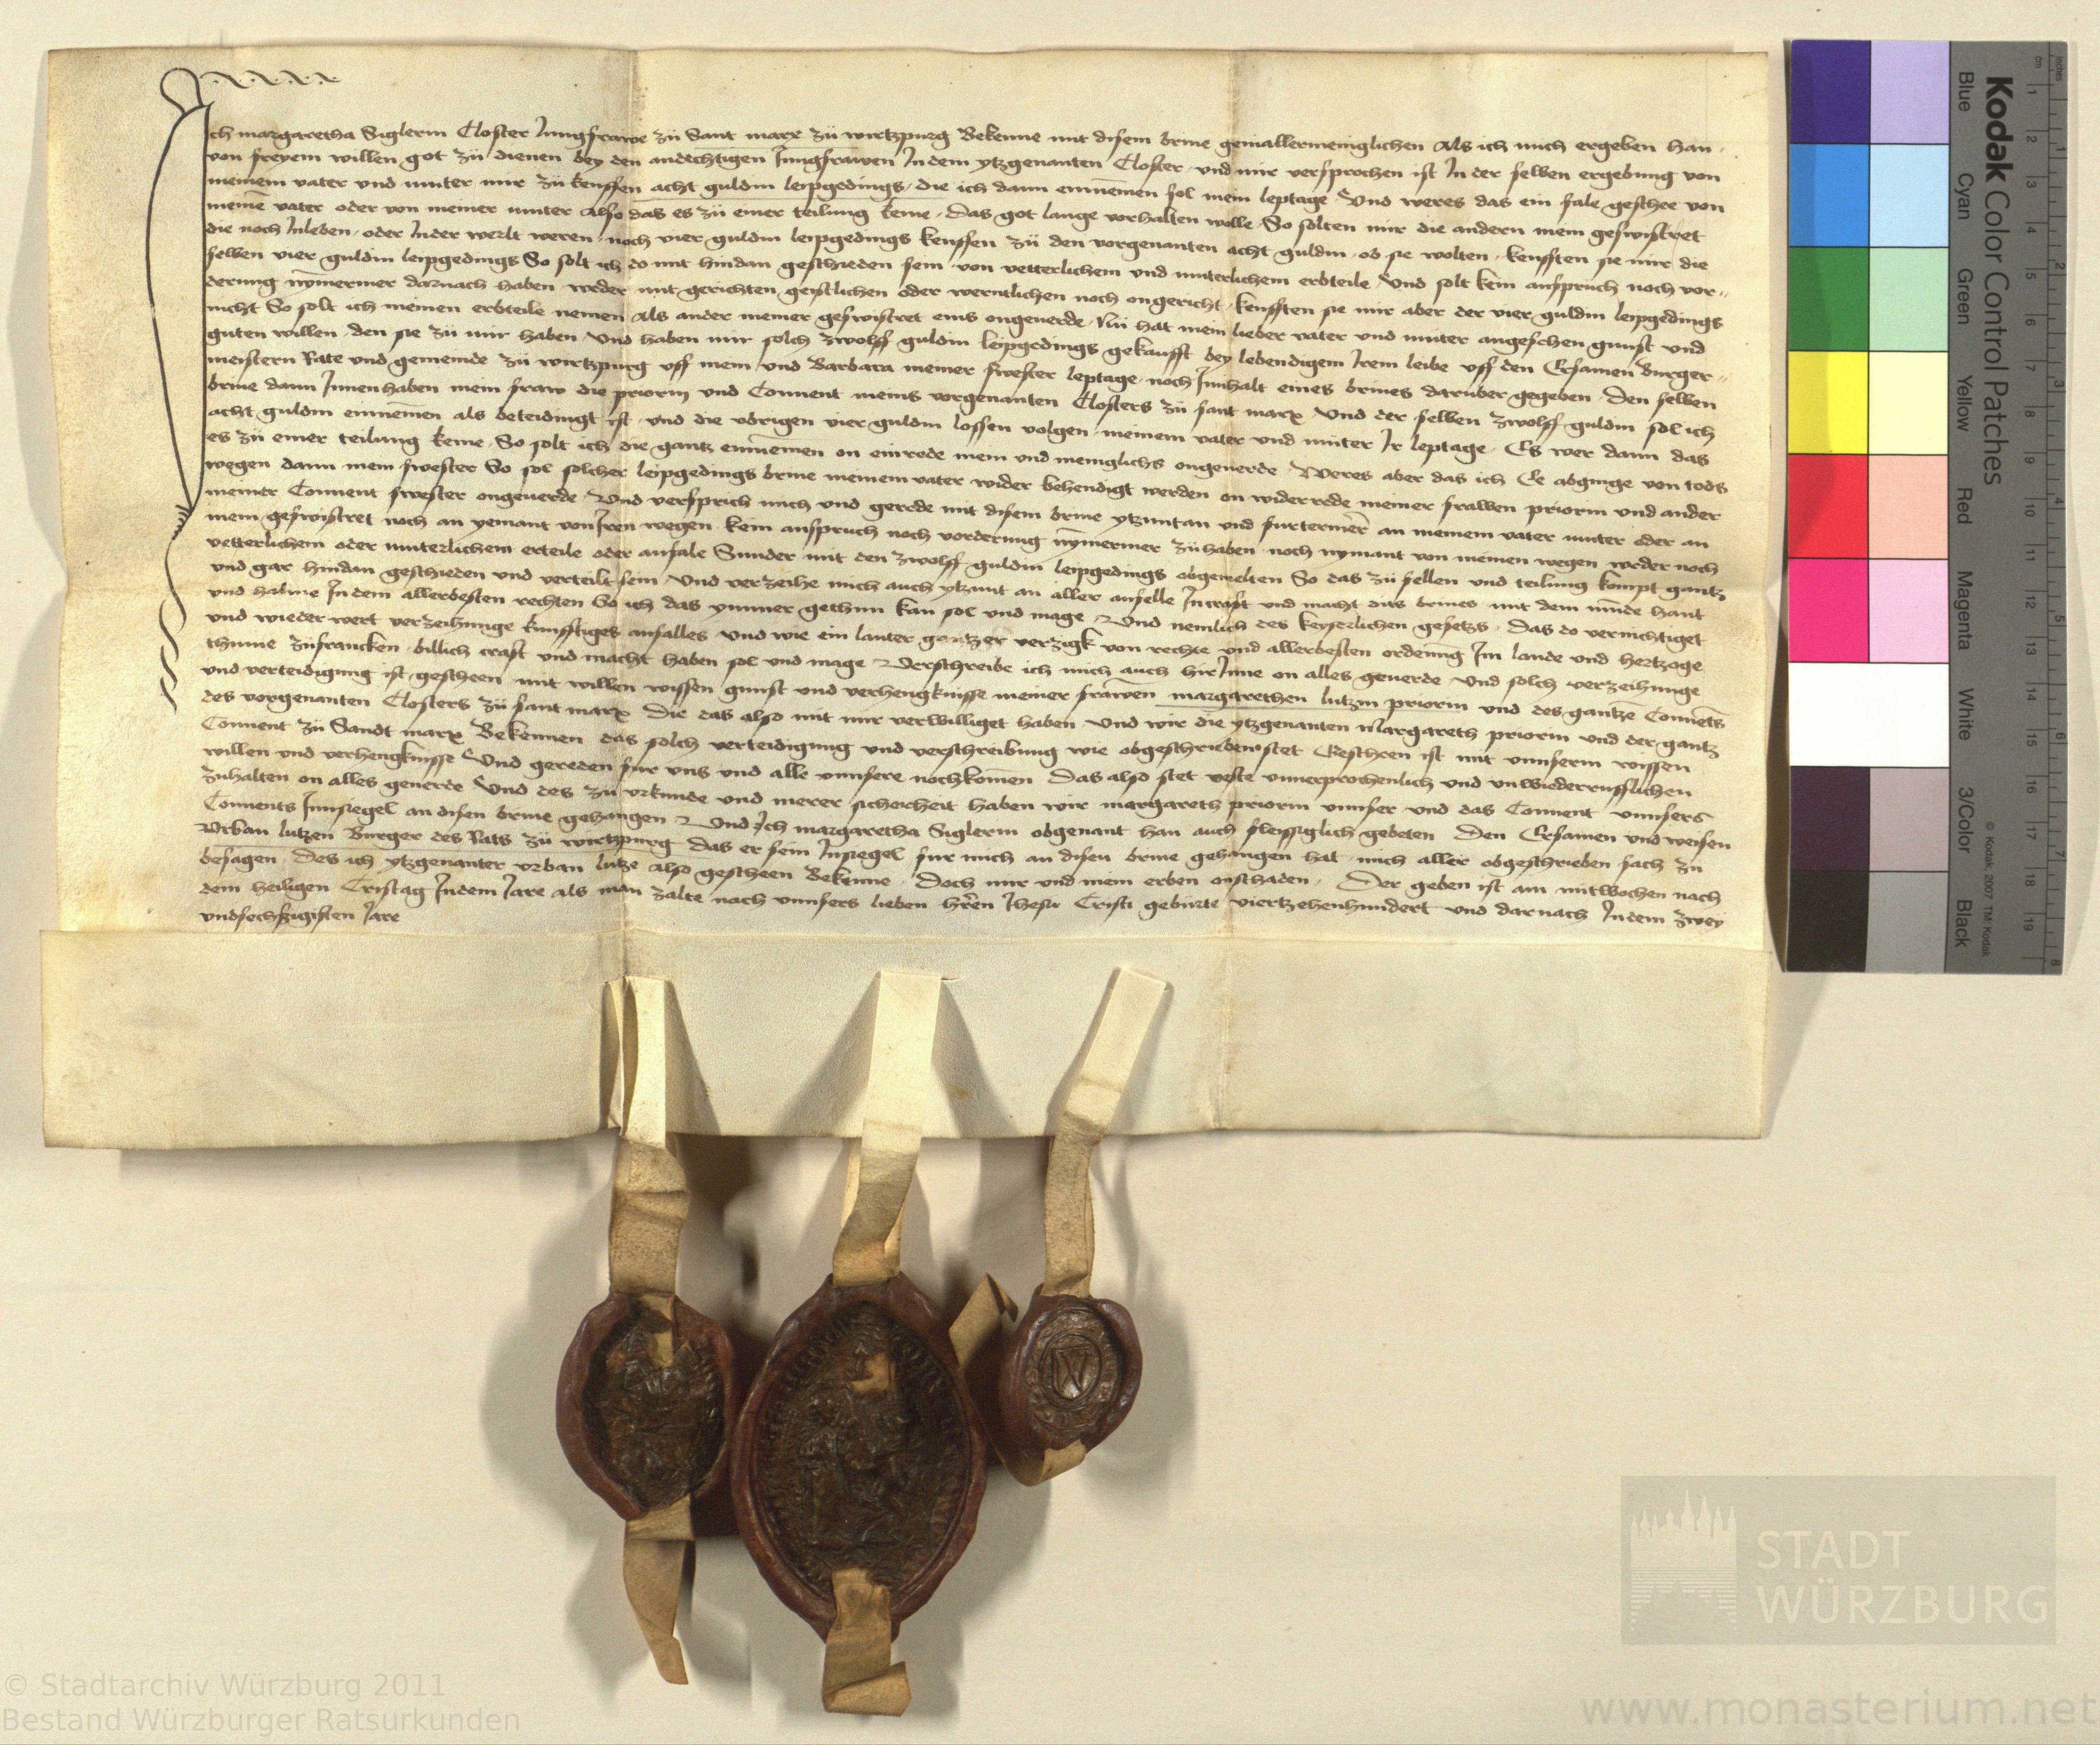 Ich margaretha Siglerin Closter Jungfrawe zů Sant marx zů wirtzpurg Bekenne mit disem brine geniallermeniglichen Als ich mich ergeben han
von freyem willen got zů dienen bey den andechtigen Jungfrawen In dem ytzgenanten Closter vnd mir versprochen ist In der selben ergebung von
meinem vater vnd muter mir zů keuffen acht guldin leipgedings die ich dann einnemen sol mein leptage Vnd weres das ein fale geschee von
meine vater oder von meiner muter Also das es zů einer teilung keme Das got lange vorhalten wolle So solten mir die andern mein geswistret
die noch Inleben oder Inder werlt weren noch vier guldin leipgedings keuffen zů den vorgenanten acht guldin ob sie wolten keufften sie mir die
selben vier guldin leipgedings So solt ich do mit hindan geschieden sein von vetterlichem vnd muterlichem erbteile Vnd solt kein anspruch noch vor
derung nymermer darnach haben weder mit gerichten geistlichen oder werntlichen noch ongericht keufften sie mir aber der vier guldin leipgedings
nicht So solt ich meinen erbteile nemen Als ander meiner geswistret eins ongeuerde Nu hat mein lieber vater vnd muter angesehen gunst vnd
guten willen den sie zů mir haben Vnd haben mir solch zwolff guldin leipgedings gekaufft bey lebendigem Irem leibe vff den Ersamen Burger
meistern Rate vnd gemeinde zů wirtzpurg vff mein vnd Barbara meiner swester leptage noch Innhalt eines brines daruber gegeben Den selben
brine dann Innenhaben mein fraw die priorin vnd Conuent meins vorgenanten Closters zů sant marx Vnd der selben zwolff guldin sol ich
acht guldin einnemen als beteidingt ist vnd die vbrigen vier guldin lossen volgen meinem vater vnd muter Ir leptage Es wer dann das
es zů einer teilung keme So solt ich die gantz einnemen on einrede mein vnd meniglichs ongeuerde Weres aber das ich Ee abginge von tods
wegen dann mein swester So sol solcher leipgedings brine meinem vater wider behendigt werden on widerrede meiner frawen priorin vnd ander
meiner Conuent swester ongeuerde Vnd versprich mich vnd gerede mit disem brine ytzuntan vnd furtermer an meinem vater muter oder an
mein geswistret noch an yemant von Iren wegen kein anspruch noch vorderung nymermer zůhaben noch nymant von meinen wegen weder noch
vetterlichem oder muterlichem erteile oder anfale Sunder mit den zwolff guldin leipgedings obgemelten So das zů fellen vnd teilung kompt gantz
vnd gar hindan geschieden vnd verteilt sein Vnd verzeihe mich auch ytzunt an aller anfelle Incraft vnd macht dits brines mit dem munde hant
vnd halme In dem allerbesten rechten So ich das ymmer gethun kan sol vnd mage Vnd nemlich des keyserlichen gesetzs Das do vernichtiget
vnd wieder wert verzeihunge kunfftiges anfalles Vnd wie ein lauter gantzer verzigk von rechte vnd allerbesten ordenung Im lande vnd hertzoge
thume zůfrancken billich craft vnd macht haben sol vnd mage Verschreibe ich mich auch hirInne on alles geuerde Vnd solch verzeihunge
vnd verteidigung ist gescheen mit willen wissen gunst vnd verhengknisse meiner frawen margarethen lutzin priorin vnd des gantze Conuets
des vorgenanten Closters zů sant marx Die das also mit mir verwilliget haben Vnd wir die ytzgenanten Margareth priorin vnd der gantz
Conuent zů Sandt marx Bekennen das solch verteidigung vnd verschreibung wie obgeschrieben stet Gescheen ist mit vnnserm wissen
willen vnd verhengknisse Vnd gereden fur vns vnd alle vnnsere nochkomen Das also stet veste vnuerprochenlich vnd vnwiederrufflichen
zuhalten on alles geuerde Vnd des zů vrkunde vnd merer sicherheit haben wir margareth priorin vnnser vnd das Conuent vnnsers
Conuents Innsiegel an disen brine gehangen Vnd Ich margaretha Siglerin obgenant han auch fleissiglich gebeten Den Ersamen vnd weisen
Vrban lutzen Burger des Rats zů wirtzpurg das er sein Insiegel fur mich an disen brine gehangen hat mich aller obgeschrieben sach zů
besagen Des ich ytzgenanter vrban lutze also gescheen Bekenne Doch mir vnd mein erben onschaden Der geben ist am mitwochen nach
dem heiligen Cristag Indem Jare als man zalte nach vnnsers lieben hren Jhesu Cristi geburte viertzehenhundert vnd darnach Indem zwey
vndsechszigisten Jare
Kodak Color Control Patches
Blue Cyan Green Yellow Red Magenta White 3/Color Black
© Kodak, 2007 TM: Kodak
STADT
WÜRZBURG
© Stadtarchiv Würzburg 2011
Bestand Würzburger Ratsurkunden
www.monasterium.net